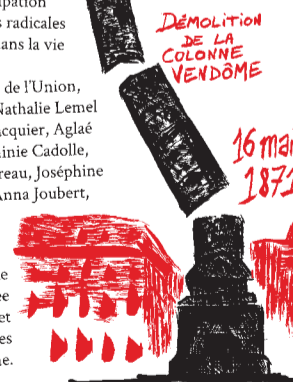 upation
s radicales
ans la vie
de l'Union,
Nathalie Lemel
cquier, Aglaé
inie Cadolle,
reau, Joséphine
Anna Joubert,
e
ée
et
es
ne.
DÉMOLITION
DE LA
COLONNE
VENDÔME
16 mai
1871